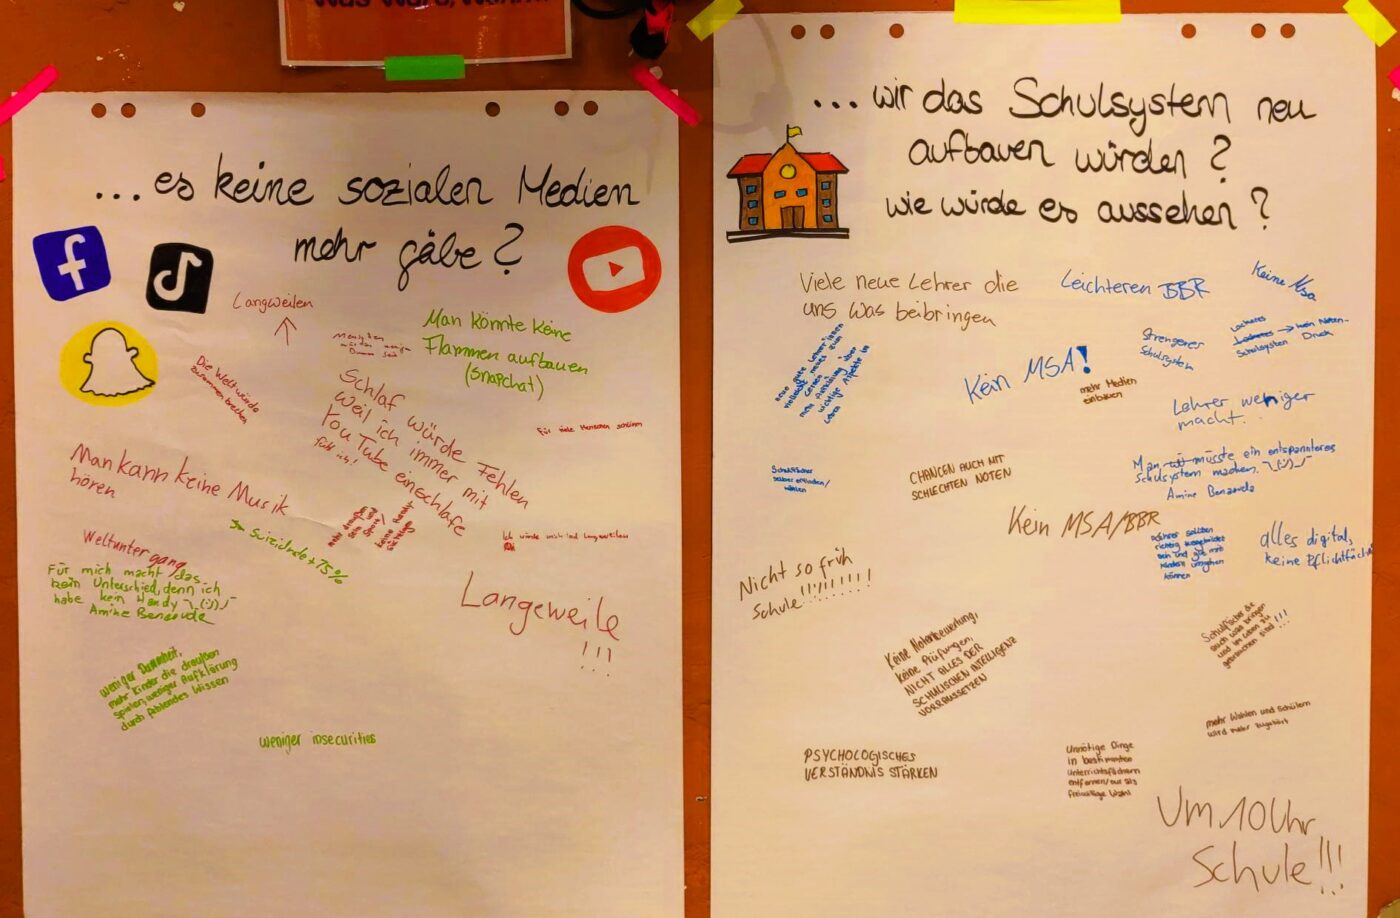 Was wäre, wenn...
... es keine sozialen Medien
mehr gäbe?
Langweilen
Man könnte keine
Flammen aufbauen
(Snapchat)
Die Welt würde
zusammen brechen
Schlaf würde Fehlen
weil ich immer mit
YouTube einschlafe
Für viele Menschen schlimm
Man kann keine Musik
hören
Suizidrate + 75%
Weltuntergang
Für mich macht das
kein Unterschied, denn ich
habe kein Handy ¯\_(:))_/¯
Amine Benaouda
Langeweile
!!!
weniger Dummheit,
mehr Kinder die draußen
spielen, weniger Aufklärung
durch fehlendes Wissen
weniger insecurities
... wir das Schulsystem neu
aufbauen würden?
wie würde es aussehen?
Viele neue Lehrer die
uns was beibringen
Leichteren BBR
Keine Msa
Strengeres
Schulsystem
Lockeres → kein Noten-
Schulsystem Druck
Kein MSA!
mehr Medien
einbauen
Lehrer weniger
macht.
Man wü müsste ein entspannteres
Schulsystem machen. ¯\_(:))_/¯
Amine Benaouda
Schulfächer
selber erfinden/
wählen
CHANCEN AUCH MIT
SCHLECHTEN NOTEN
Kein MSA/BBR
Lehrer sollten
richtig ausgebildet
sein und gut mit
Kindern umgehen
können
alles digital,
keine Pflichtfäch
Nicht so früh
Schule!!!!!!!!!
Keine Notenbewertung,
keine Prüfungen,
NICHT ALLES DER
SCHULISCHEN INTELLIGENZ
VORRAUSSETZEN
Schulfächer die
auch was bringen
und im Leben zu
gebrauchen sind!!!
mehr Wahlen und Schülern
wird mehr zugehört
PSYCHOLOGISCHES
VERSTÄNDNIS STÄRKEN
Unnötige Dinge
in bestimmten
Unterrichtsfächern
entfernen/nur als
freiwillige Wahl
Um 10 Uhr
Schule!!!